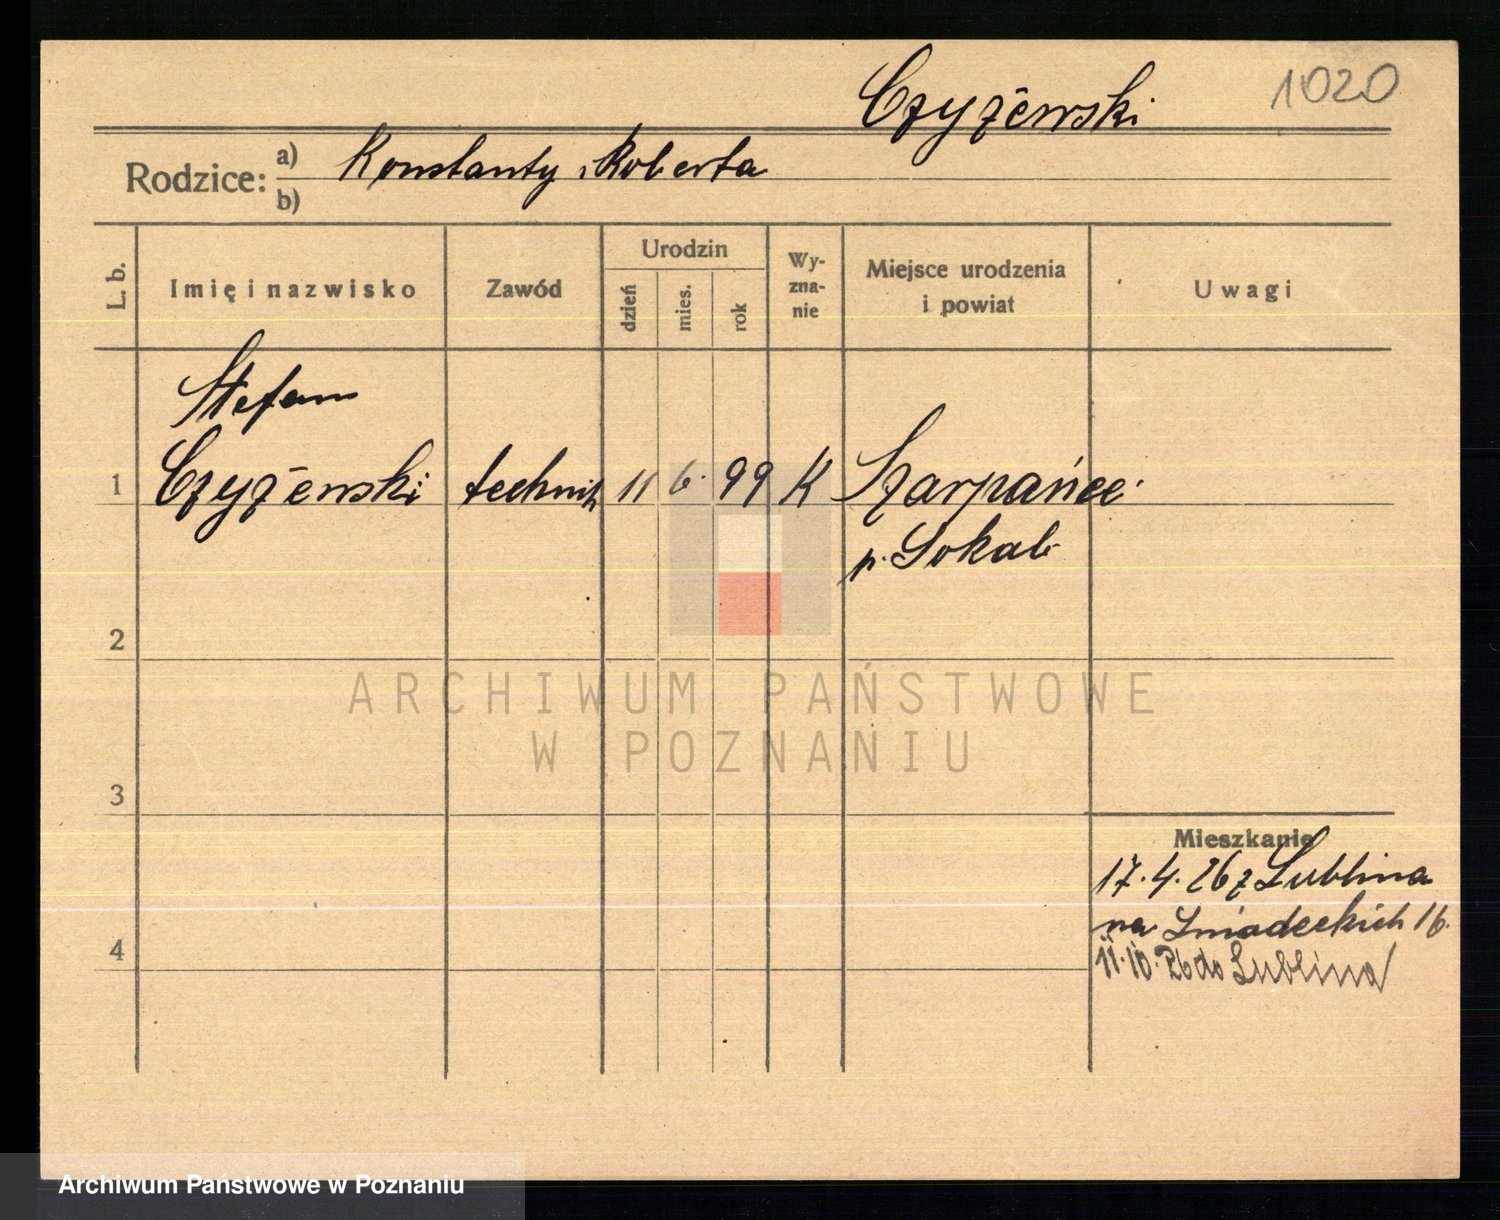 Czyżewski 1020
Rodzice: a) Konstanty i Roberta
b)
L. b.
Imię i nazwisko
Zawód
Urodzin
dzień
mies.
rok
Wy-
zna-
nie
Miejsce urodzenia
i powiat
Uwagi
Stefan
1 Czyżewski technik 11 6. 99 K Szarpańce
p. Sokal
2
ARCHIWUM PAŃSTWOWE
W POZNANIU
3
Mieszkanie
17.4.26 z Lublina
na Śniadeckich 16.
4 11.10.26 do Lublina
Archiwum Państwowe w Poznaniu